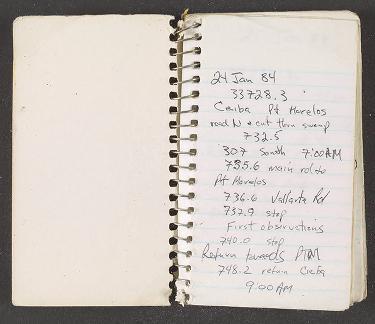 24 Jan 84
33728.3
Ceiba Pt Morelos
road N & cut thru swamp
732.5
307 South 7:00AM
735.6 main rd to
Pt Morelos
736.6 Vallarta Rd
737.9 stop
First observations
740.0 stop
Return towards PTM
748.2 return Ceiba
9:00AM